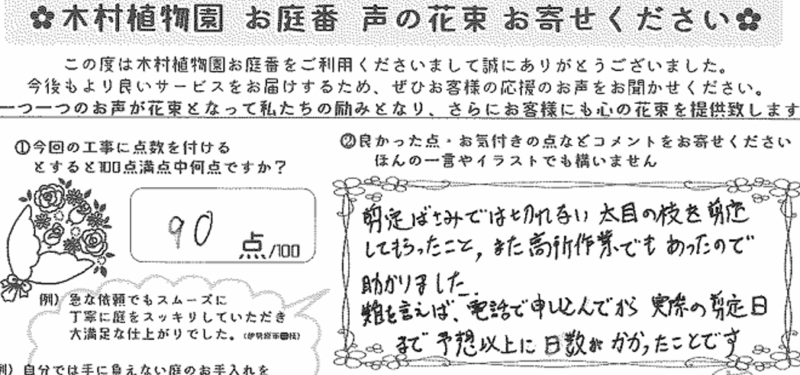 ✿木村植物園 お庭番 声の花束 お寄せください✿
この度は木村植物園お庭番をご利用くださいまして誠にありがとうございました。
今後もより良いサービスをお届けするため、ぜひお客様の応援のお声をお聞かせください。
一つ一つのお声が花束となって私たちの励みとなり、さらにお客様にも心の花束を提供致します
①今回の工事に点数を付ける
とすると100点満点中何点ですか?
90 点/100
例) 急な依頼でもスムーズに
丁寧に庭をスッキリしていただき
大満足な仕上がりでした。(伊勢原市 様)
例) 自分では手に負えない庭のお手入れを
②良かった点・お気付きの点などコメントをお寄せください
ほんの一言やイラストでも構いません
剪定ばさみでは切れない 太目の枝を剪定
してもらったこと, また高所作業でもあったので
助かりました.
難を言えば、電話で申し込んでから 実際の剪定日
まで 予想以上に 日数が かかったことです